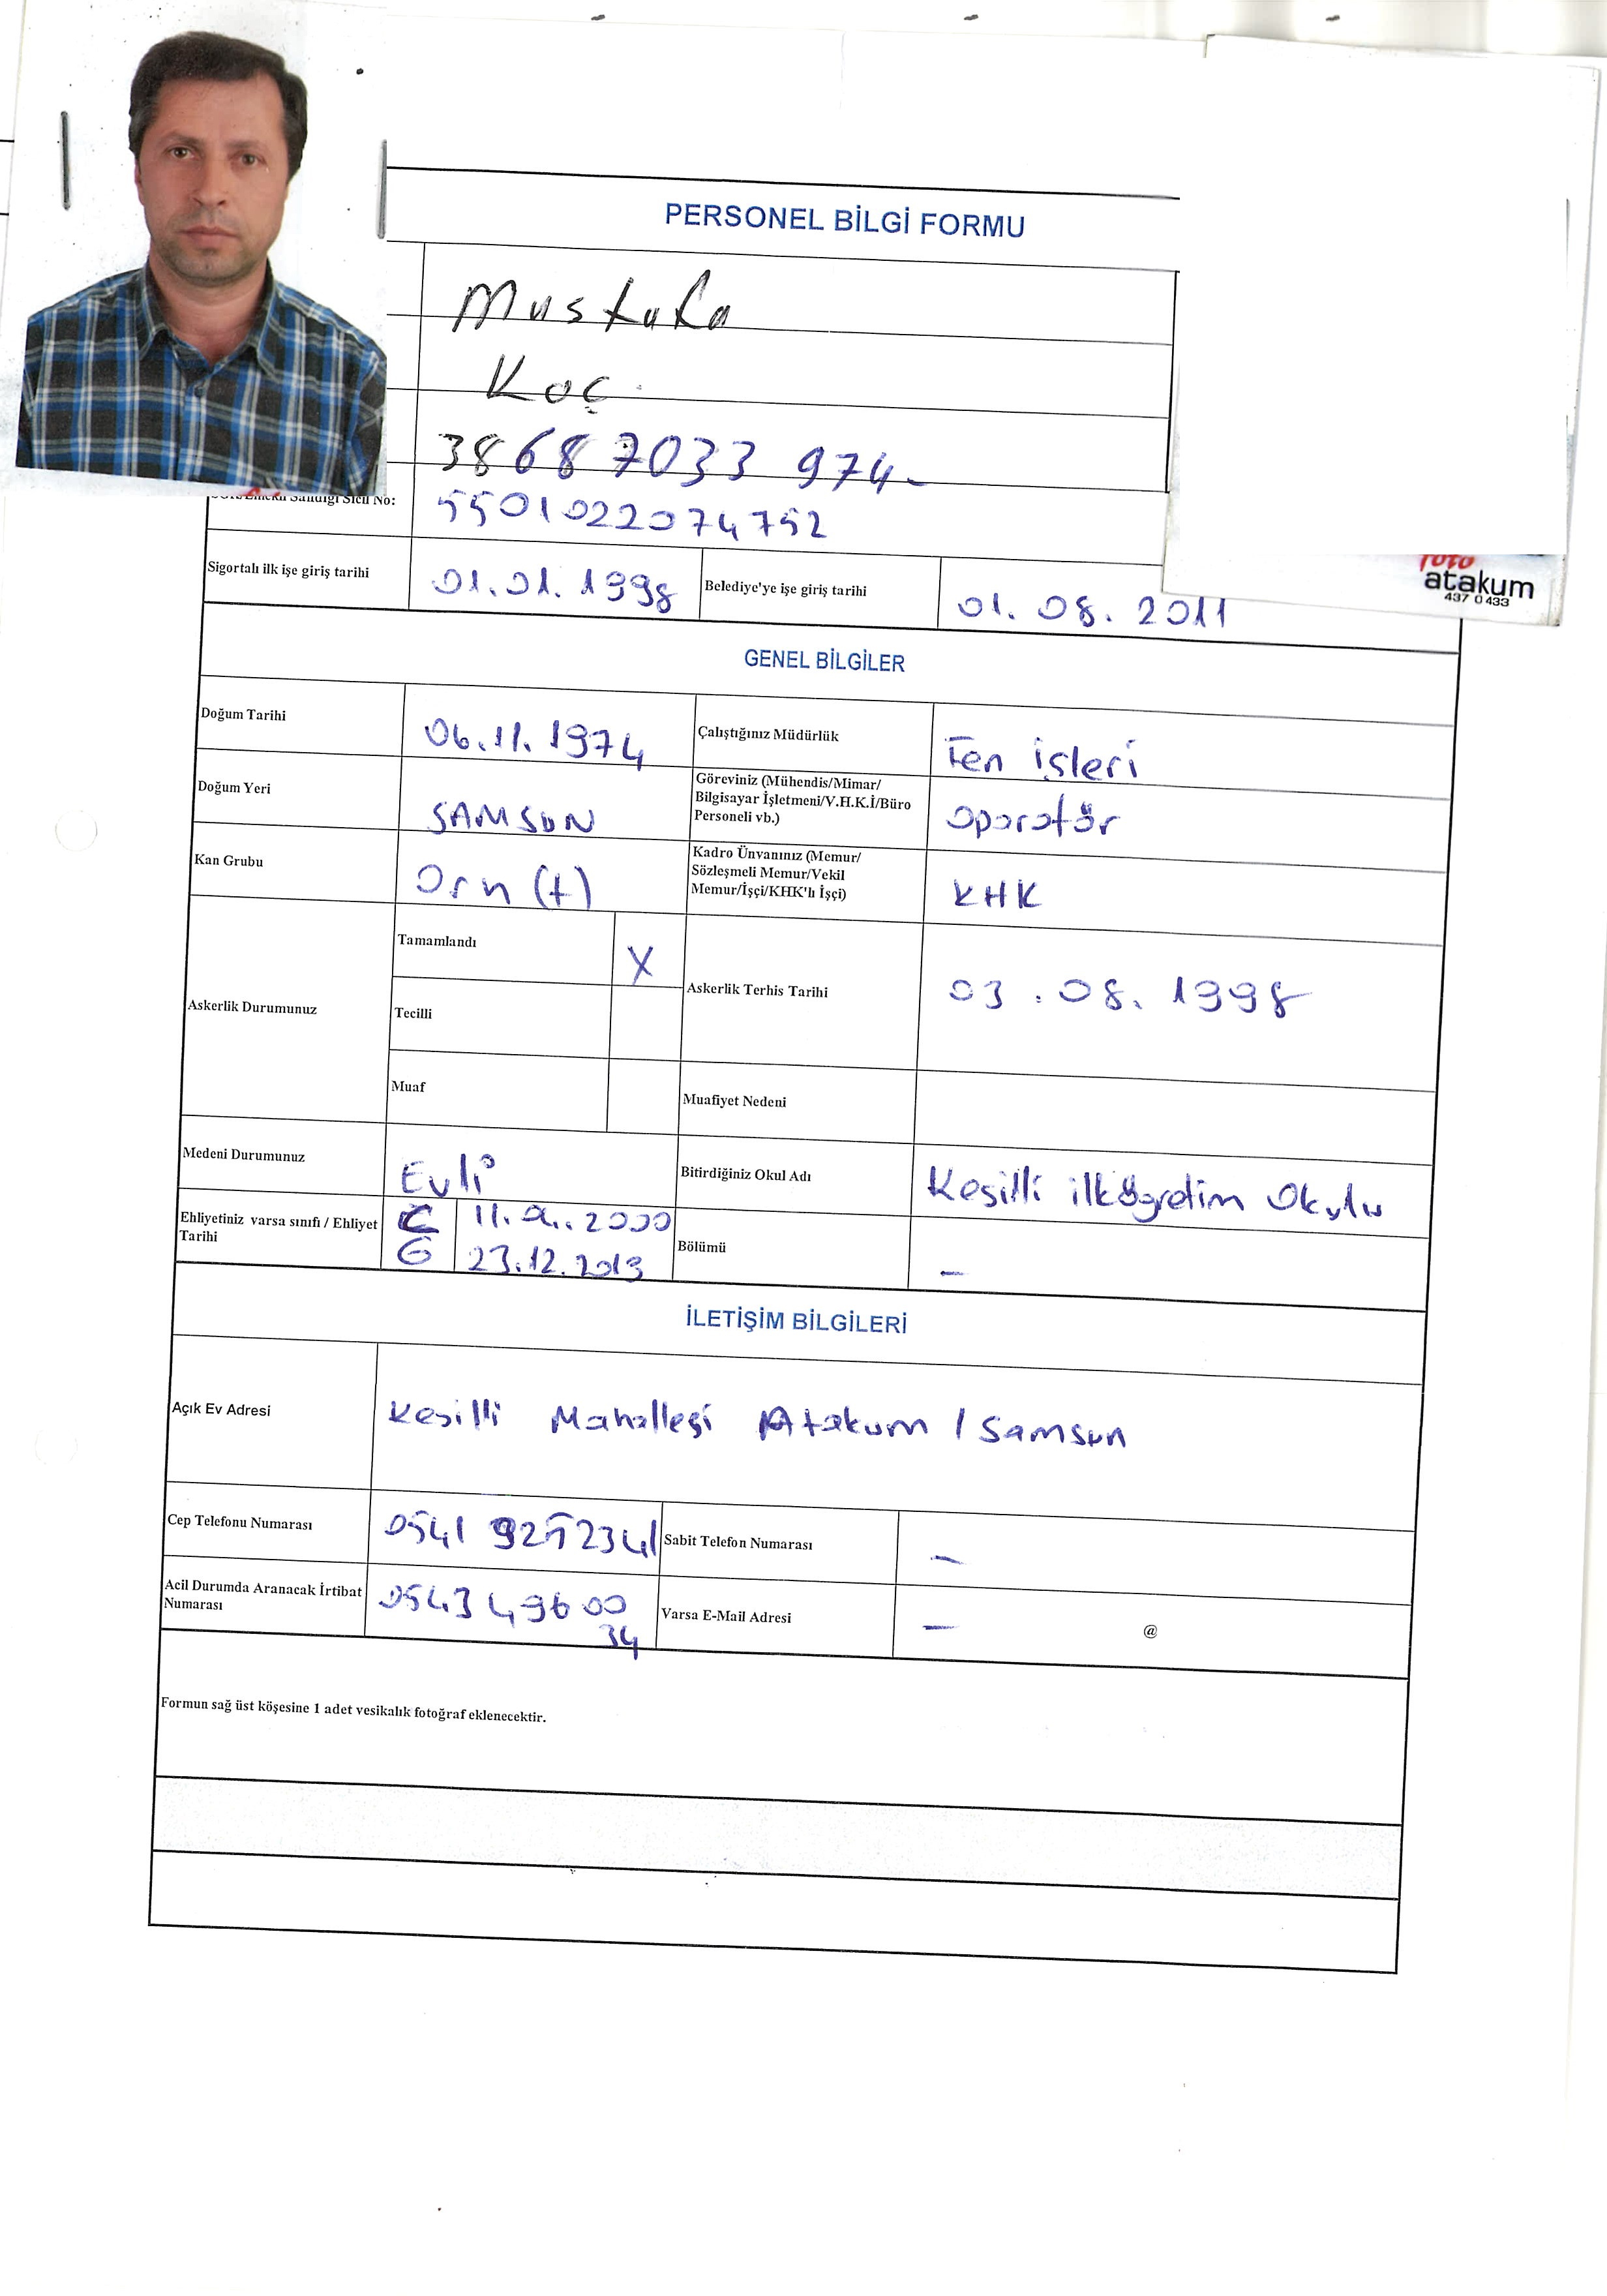 PERSONEL BİLGİ FORMU
Mustafa
Koç
38687033 974-
Sandığı Sicil No: 5501022074752
Sigortalı ilk işe giriş tarihi 01.01.1998 Belediye'ye işe giriş tarihi 01.08.2011
foto
atakum
437 0 433
GENEL BİLGİLER
Doğum Tarihi 06.11.1974 Çalıştığınız Müdürlük Fen işleri
Doğum Yeri SAMSUN Göreviniz (Mühendis/Mimar/
Bilgisayar İşletmeni/V.H.K.İ/Büro
Personeli vb.) operatör
Kan Grubu 0rh (+) Kadro Ünvanınız (Memur/
Sözleşmeli Memur/Vekil
Memur/İşçi/KHK'lı İşçi) KHK
Askerlik Durumunuz
Tamamlandı X
Tecilli
Muaf
Askerlik Terhis Tarihi 03.08.1998
Muafiyet Nedeni
Medeni Durumunuz Evli Bitirdiğiniz Okul Adı Kesilli ilköğretim Okulu
Ehliyetiniz varsa sınıfı / Ehliyet
Tarihi
G 23.12.2013
Bölümü -
İLETİŞİM BİLGİLERİ
Açık Ev Adresi Kesilli Mahallesi Atakum / Samsun
Cep Telefonu Numarası 0541 Sabit Telefon Numarası -
Acil Durumda Aranacak İrtibat
Numarası 0543 496 00
34
Varsa E-Mail Adresi - @
Formun sağ üst köşesine 1 adet vesikalık fotoğraf eklenecektir.